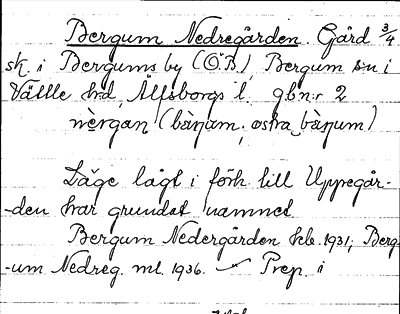 Bergum Nedregården. Gård 3/4
sk. i Bergums by (Ö.B), Bergum sn i
Vättle hd, Älfsborgs l. gbnr 2
nèrgan (bàŋam, østra bàŋum)
Läge lågt i förh. till Uppegår-
-den har grundat namnet
Bergum Nedergården kb. 1931; Berg-
-um Nedreg. ml. 1936. Prep. i